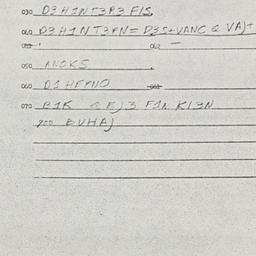 030 D3 H1NT3R3 F1S.
040 D3 H1NT3RN= D3S+VANC & VAJ+
042 —
050 ANOKS
060 D1 HERNO
070 B1K & EJ3 F1N K13N
900 BUHAJ